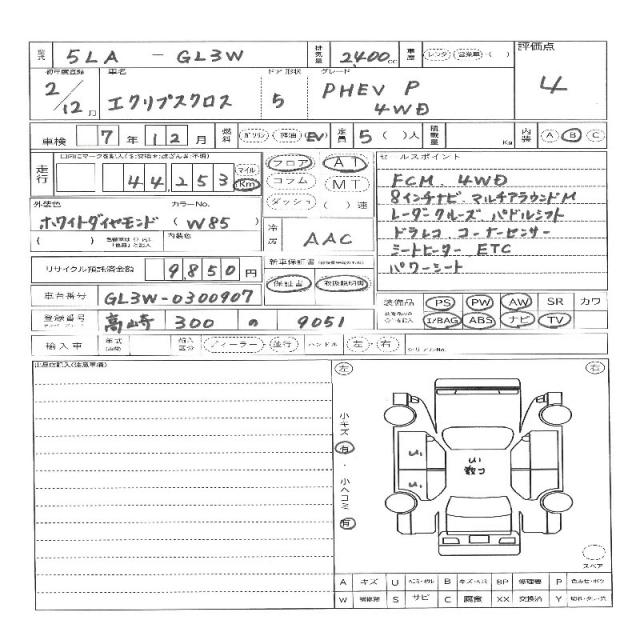 型式 5LA - GL3W 排気量 2,400cc 車歴 レンタ 営業車・( ) 評価点 4
初年度登録 2/12月 車名 エクリプスクロス ドア 形状 5 グレード PHEV P 4WD
車検 7年12月 燃料 ガソリン・軽油・EV 定員 5( )人 積載量 Kg 内装 A B C
走行 44,253 マイル Km フロア AT セールスポイント
コラム MT FCM 4WD
外装色 カラーNo. ダッシュ ( )速 8インチナビ マルチアラウンドM
ホワイトダイヤモンド (W85) レーダークルーズ パドルシフト
( ) 内装色 冷房 AAC ドラレコ コーナーセンサー
シートヒーター ETC
リサイクル預託済金額 9,850円 新車保証書 パワーシート
車台番号 GL3W-0300907 保証書 取扱説明書 装備品 PS PW AW SR カワ
登録番号 高崎 300 の 9051 I/BAG ABS ナビ TV
輸入車 年式 輸入区分 ディーラー・並行 ハンドル 左・右
左 右
小キズ 有・小ヘコミ 有
スペア
A キズ U B BP 修理要 P
W S サビ C 腐食 XX 交換済 Y